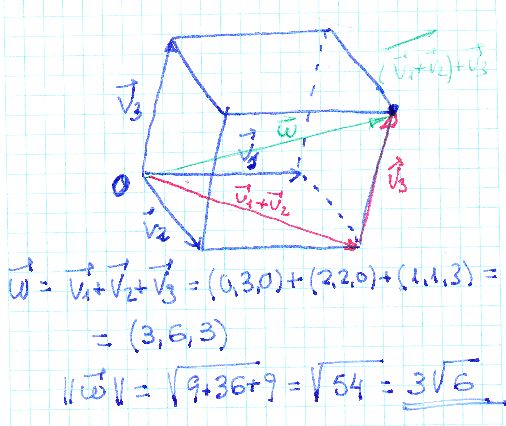 (v⃗₁+v⃗₂)+v⃗₃
v⃗₃
w⃗
v⃗₁
O
v⃗₁+v⃗₂
v⃗₃
v⃗₂
w⃗ = v⃗₁+v⃗₂+v⃗₃ = (0,3,0)+(2,2,0)+(1,1,3) =
= (3,6,3)
||w⃗|| = √9+36+9 = √54 = 3√6